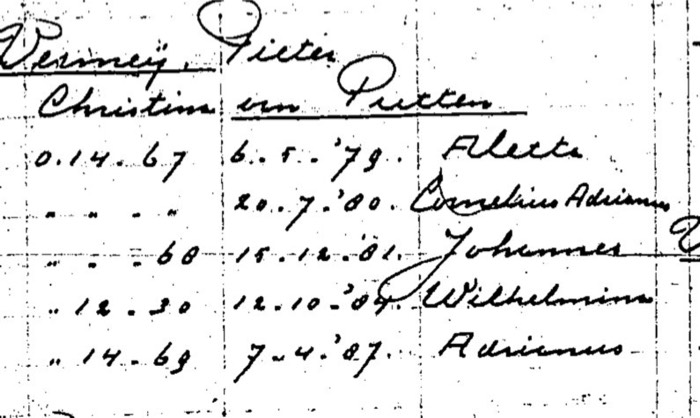 Vermeÿ. Pieter
Christina van Putten
0.14.67 6.5.'79. Aletta
" " " " 20.7.'80. Cornelius Adrianus
" . . 68 15.12.'81. Johannes
" 12.30 12.10.'84. Wilhelmina
" 14.69 7.4.'87. Adrianus